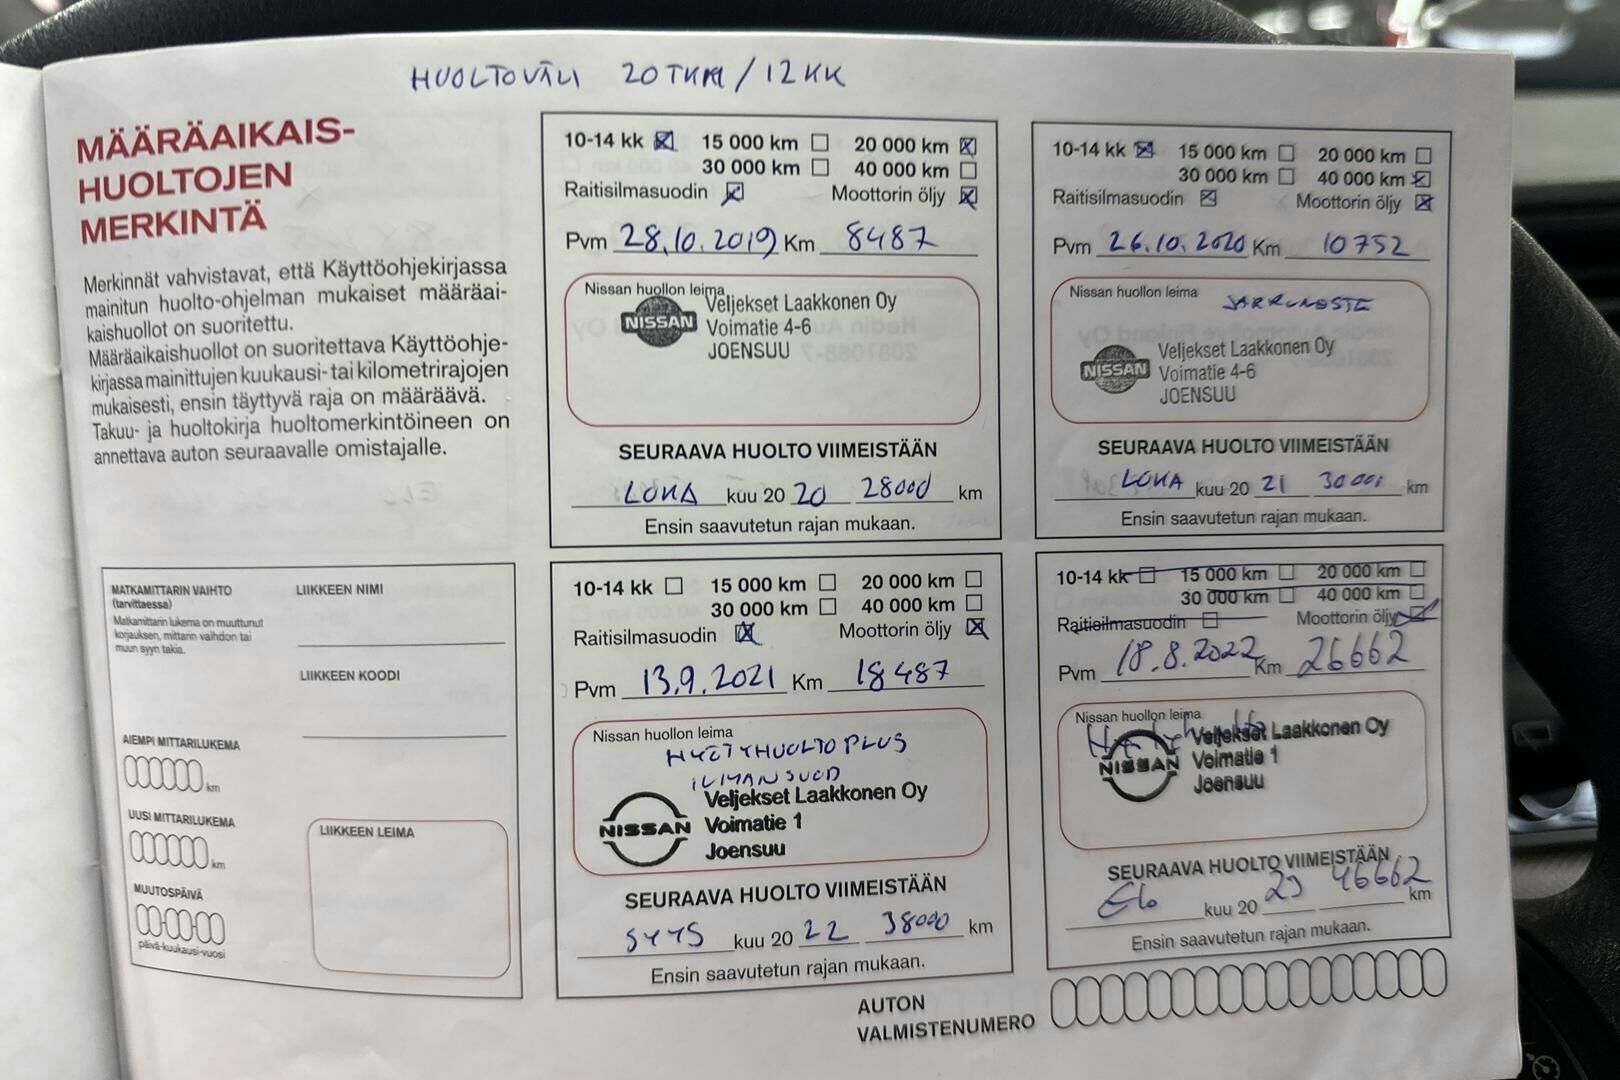 HUOLTOVÄLI 20 TKM / 12 KK
MÄÄRÄAIKAIS-
HUOLTOJEN
MERKINTÄ
Merkinnät vahvistavat, että Käyttöohjekirjassa
mainitun huolto-ohjelman mukaiset määräai-
kaishuollot on suoritettu.
Määräaikaishuollot on suoritettava Käyttöohje-
kirjassa mainittujen kuukausi- tai kilometrirajojen
mukaisesti, ensin täyttyvä raja on määräävä.
Takuu- ja huoltokirja huoltomerkintöineen on
annettava auton seuraavalle omistajalle.
10-14 kk 15 000 km 20 000 km
30 000 km 40 000 km
Raitisilmasuodin Moottorin öljy
Pvm 28.10.2019 Km 8487
Nissan huollon leima
NISSAN
Veljekset Laakkonen Oy
Voimatie 4-6
JOENSUU
SEURAAVA HUOLTO VIIMEISTÄÄN
LOKA kuu 20 20 28000 km
Ensin saavutetun rajan mukaan.
10-14 kk 15 000 km 20 000 km
30 000 km 40 000 km
Raitisilmasuodin Moottorin öljy
Pvm 26.10.2020 Km 10752
Nissan huollon leima
JARRUNESTE
NISSAN
Veljekset Laakkonen Oy
Voimatie 4-6
JOENSUU
SEURAAVA HUOLTO VIIMEISTÄÄN
LOKA kuu 20 21 km
Ensin saavutetun rajan mukaan.
MATKAMITTARIN VAIHTO
(tarvittaessa)
Matkamittarin lukema on muuttunut
korjauksen, mittarin vaihdon tai
muun syyn takia.
LIIKKEEN NIMI
LIIKKEEN KOODI
AIEMPI MITTARILUKEMA
km
UUSI MITTARILUKEMA
km
MUUTOSPÄIVÄ
päivä-kuukausi-vuosi
LIIKKEEN LEIMA
10-14 kk 15 000 km 20 000 km
30 000 km 40 000 km
Raitisilmasuodin Moottorin öljy
Pvm 13.9.2021 Km 18487
Nissan huollon leima
HYÖTYHUOLTO PLUS
ILMANSUOD
NISSAN
Veljekset Laakkonen Oy
Voimatie 1
Joensuu
SEURAAVA HUOLTO VIIMEISTÄÄN
SYYS kuu 20 22 38000 km
Ensin saavutetun rajan mukaan.
10-14 kk 15 000 km 20 000 km
30 000 km 40 000 km
Raitisilmasuodin Moottorin öljy
Pvm 18.8.2022 Km 26662
Nissan huollon leima
NISSAN
Veljekset Laakkonen Oy
Voimatie 1
Joensuu
SEURAAVA HUOLTO VIIMEISTÄÄN
Elo kuu 20 23 46662 km
Ensin saavutetun rajan mukaan.
AUTON
VALMISTENUMERO